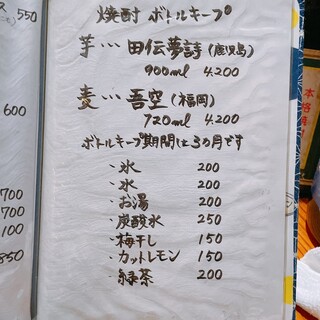 ス 550
600
700
700
100
850
焼酎 ボトルキープ
芋… 田伝夢詩(鹿児島)
900ml 4.200
麦… 吾空(福岡)
720ml 4.200
ボトルキープ期間は3ヵ月です
・氷 200
・水 200
・お湯 200
・炭酸水 250
・梅干し 150
・カットレモン 150
・緑茶 200
本格焼